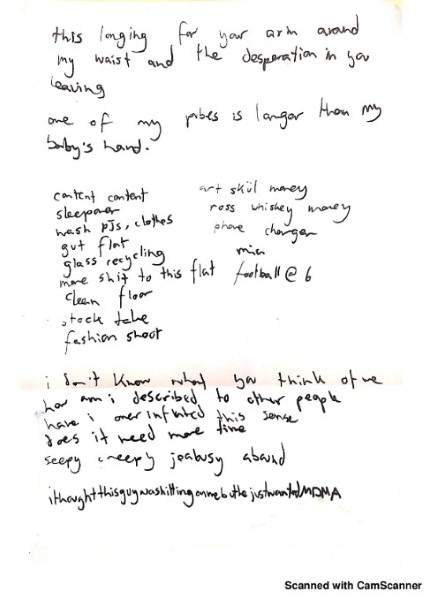 this longing for your arm around
my waist and the desperation in you
leaving
one of my pubes is longer than my
baby's hand.
content content
sleepover
wash pjs, clothes
gut flat
glass recycling
more shit to this flat
clean floor
stock take
fashion shoot
art skül money
ross whiskey money
phone charger
mic
football @ 6
i don't know what you think of me
how am i described to other people
have i over inflated this sense
does it need more time
seepy creepy jealousy abound
ithoughtthisguywashittingonmebuthejustwantedMDMA
Scanned with CamScanner